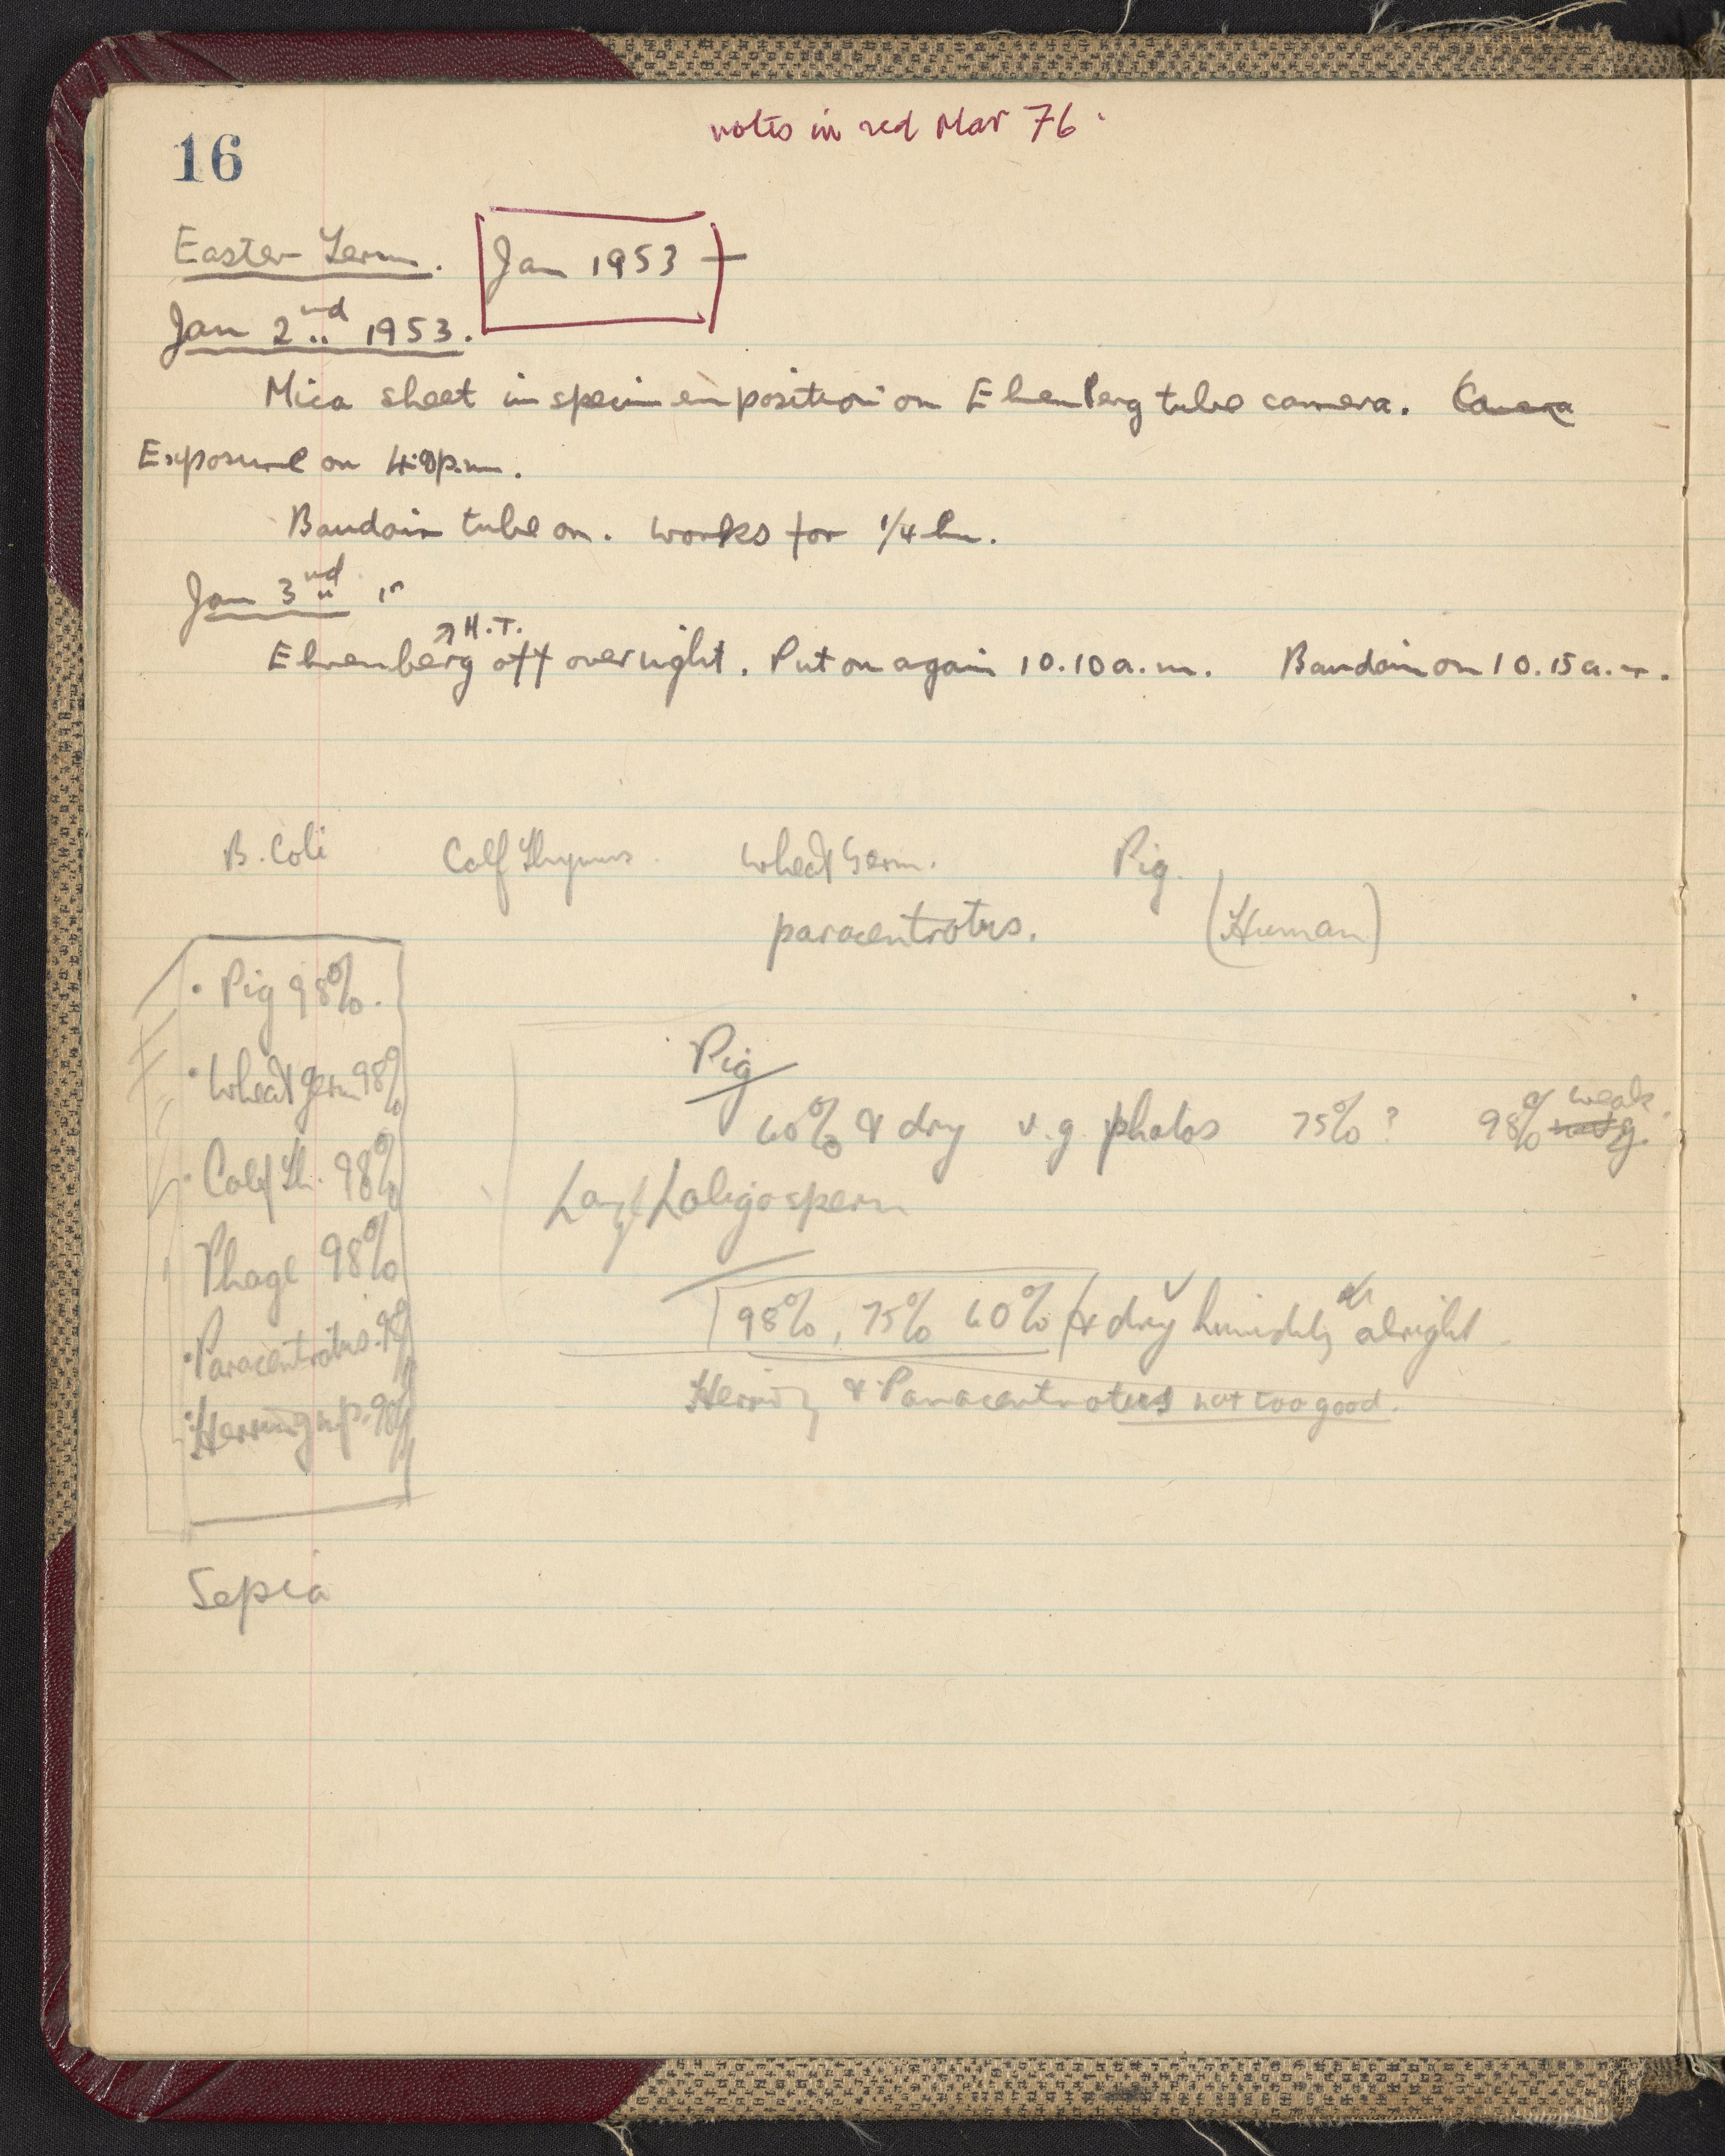 16
notes in red Mar 76.
Easter Term. Jan 1953
Jan 2nd 1953.
Mica sheet in specimen position on Ehrenberg tube camera. Camera
Exposure on 4.0p.m.
Baudoin tube on. Works for 1/4 hr.
Jan 3rd
H.T.
Ehrenberg off overnight. Put on again 10.10 a.m. Baudoin on 10.15 a.m.
B. Coli Calf Thymus. Wheat Germ. Pig.
paracentrotus. (Human)
• Pig 98%.
• Wheat germ 98%
• Calf Th. 98%
Phage 98%
• Paracentrotus.
• Herring sp. 98%
Sepia
Pig
60% & dry v.g. photos 75%? 98% weak
not g.
Loligo sperm
98%, 75% 60% & dry humidity alright
Herring & Paracentrotus not too good.